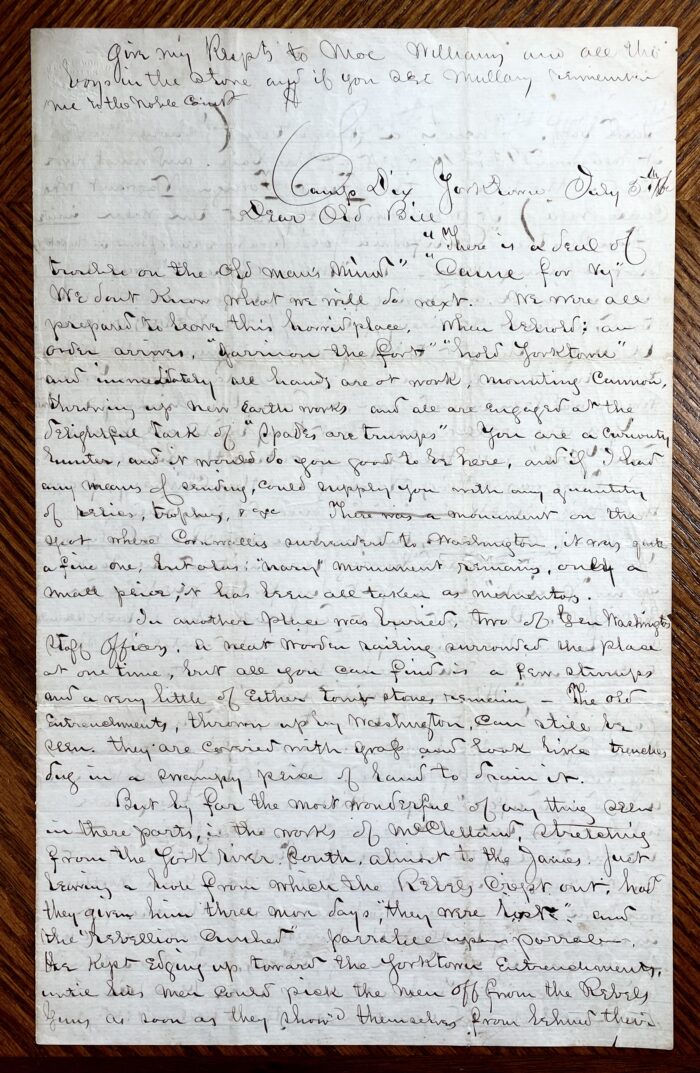 Give my Respts to Moc Williams and all the
boys in the store and if you see Mullary remember
me to the Noble
Camp Dix Yorktown July 5th
Dear Old Bill
"There is a deal of
trouble on the Old Man's Mind" "Came for Vy"
We dont Know what we will do next. We were all
prepared to leave this horrid place, When behold; an
order arrives, "Garrison the fort" "hold Yorktown"
and immediately all hands are at work, mounting Cannon,
throwing up new Earth works and all are engaged at the
delightful task of "Spades are trumps" You are a curiosity
hunter, and it would do you good to be here, and if I had
any means of sending, could supply you with any quantity
of relics, trophies, & &c There was a monument on the
spot where Cornwallis surrendered to Washington, it was quite
a fine one, but alas! "nary" monument remains, only a
small peice, it has been all taken as mementos.
In another place was buried, two of Gen Washingtons
Staff officers. A neat wooden railing surrounded the place
at one time, but all you can find is a few stumps
and a very little of Either tomb stones remain, – The old
Entrenchments, thrown up by Washington, can still be
seen. they are covered with grass and look like trenches
dug in a swampy peice of land to drain it.
But by far the most wonderful of any thing seen
in these parts, is the works of McClelland, stretching
from the York river South, almost to the James. Just
leaving a hole from which the Rebels Crept out, had
they given him three mor days, "they were lost" and
the "Rebellion Crushed" parralell upon parralell,
He Kept Edging up toward the Yorktown Entrenchments,
until his men could pick the men off from the Rebels
Guns as soon as they show'd themselves from behind their